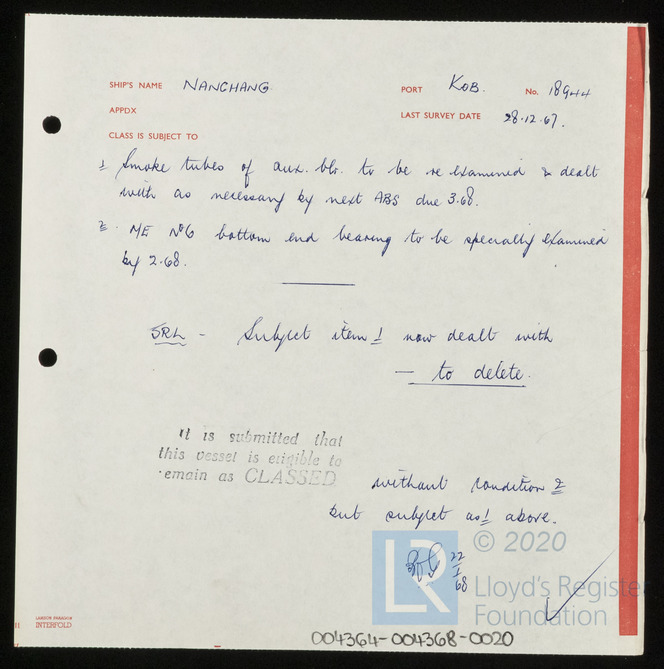 SHIP'S NAME NANCHANG PORT KOB. No. 18944
APPDX LAST SURVEY DATE 28.12.67.
CLASS IS SUBJECT TO
1 Smoke tubes of aux. blr. to be re examined & dealt
with as necessary by next ABS due 3.68.
2. ME No6 bottom end bearing to be specially examined
by 2.68.
SRL - Subject item 1 now dealt with
— to delete.
It is submitted that
this vessel is eligible to
remain as CLASSED
without condition 2
but subject as 1 above.
22
1
68
© 2020
LR
Lloyd's Register
Foundation
LAMSON PARAGON
INTERFOLD
004364-004368-0020